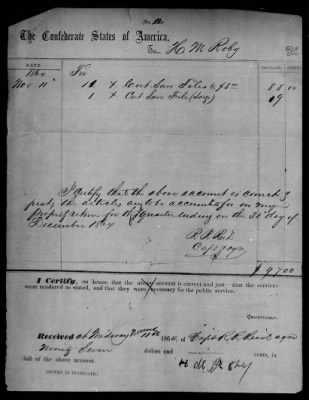 (No. 12.)
The Confederate States of America,
To H. M. Roby Dr.
DATE. DOLLARS CENTS
1864 For
Nov 11 11 X Cut Saw Files @ 8.00 88 00
1 X Cut Saw File (large) 9
I certify that the above account is correct &
just; the articles to be accounted for on my
property return for the Quarter ending on the 31st day of
December 1864
R. R. Reid
Capt & aqm
$ 97.00
I Certify, on honor, that the above account is correct and just—that the services
were rendered as stated, and that they were necessary for the public service.
Quartermaster.
Received at Midway 11th 1864, of Capt R. R. Reid aqm
ninety Seven dollars and cents, in
full of the above account.
(SIGNED IN DUPLICATE.) H. M. Roby